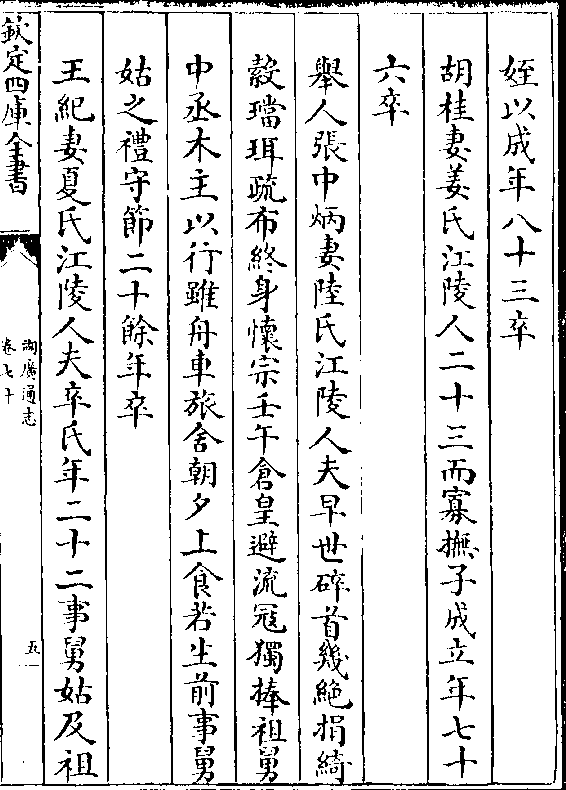 姪以成年八十三卒
胡桂妻姜氏江陵人二十三而寡撫子成立年七十
六卒
舉人張中炳妻陸氏江陵人夫早世碎首幾絶捐綺
縠璫珥疏布終身懷宗壬午倉皇避流冦獨捧祖舅
中丞木主以行雖舟車旅舍朝夕上食若生前事舅
姑之禮守節二十餘年卒
王紀妻夏氏江陵人夫卒氏年二十二事舅姑及祖
欽定四庫全書
湖廣通志
卷七十
五